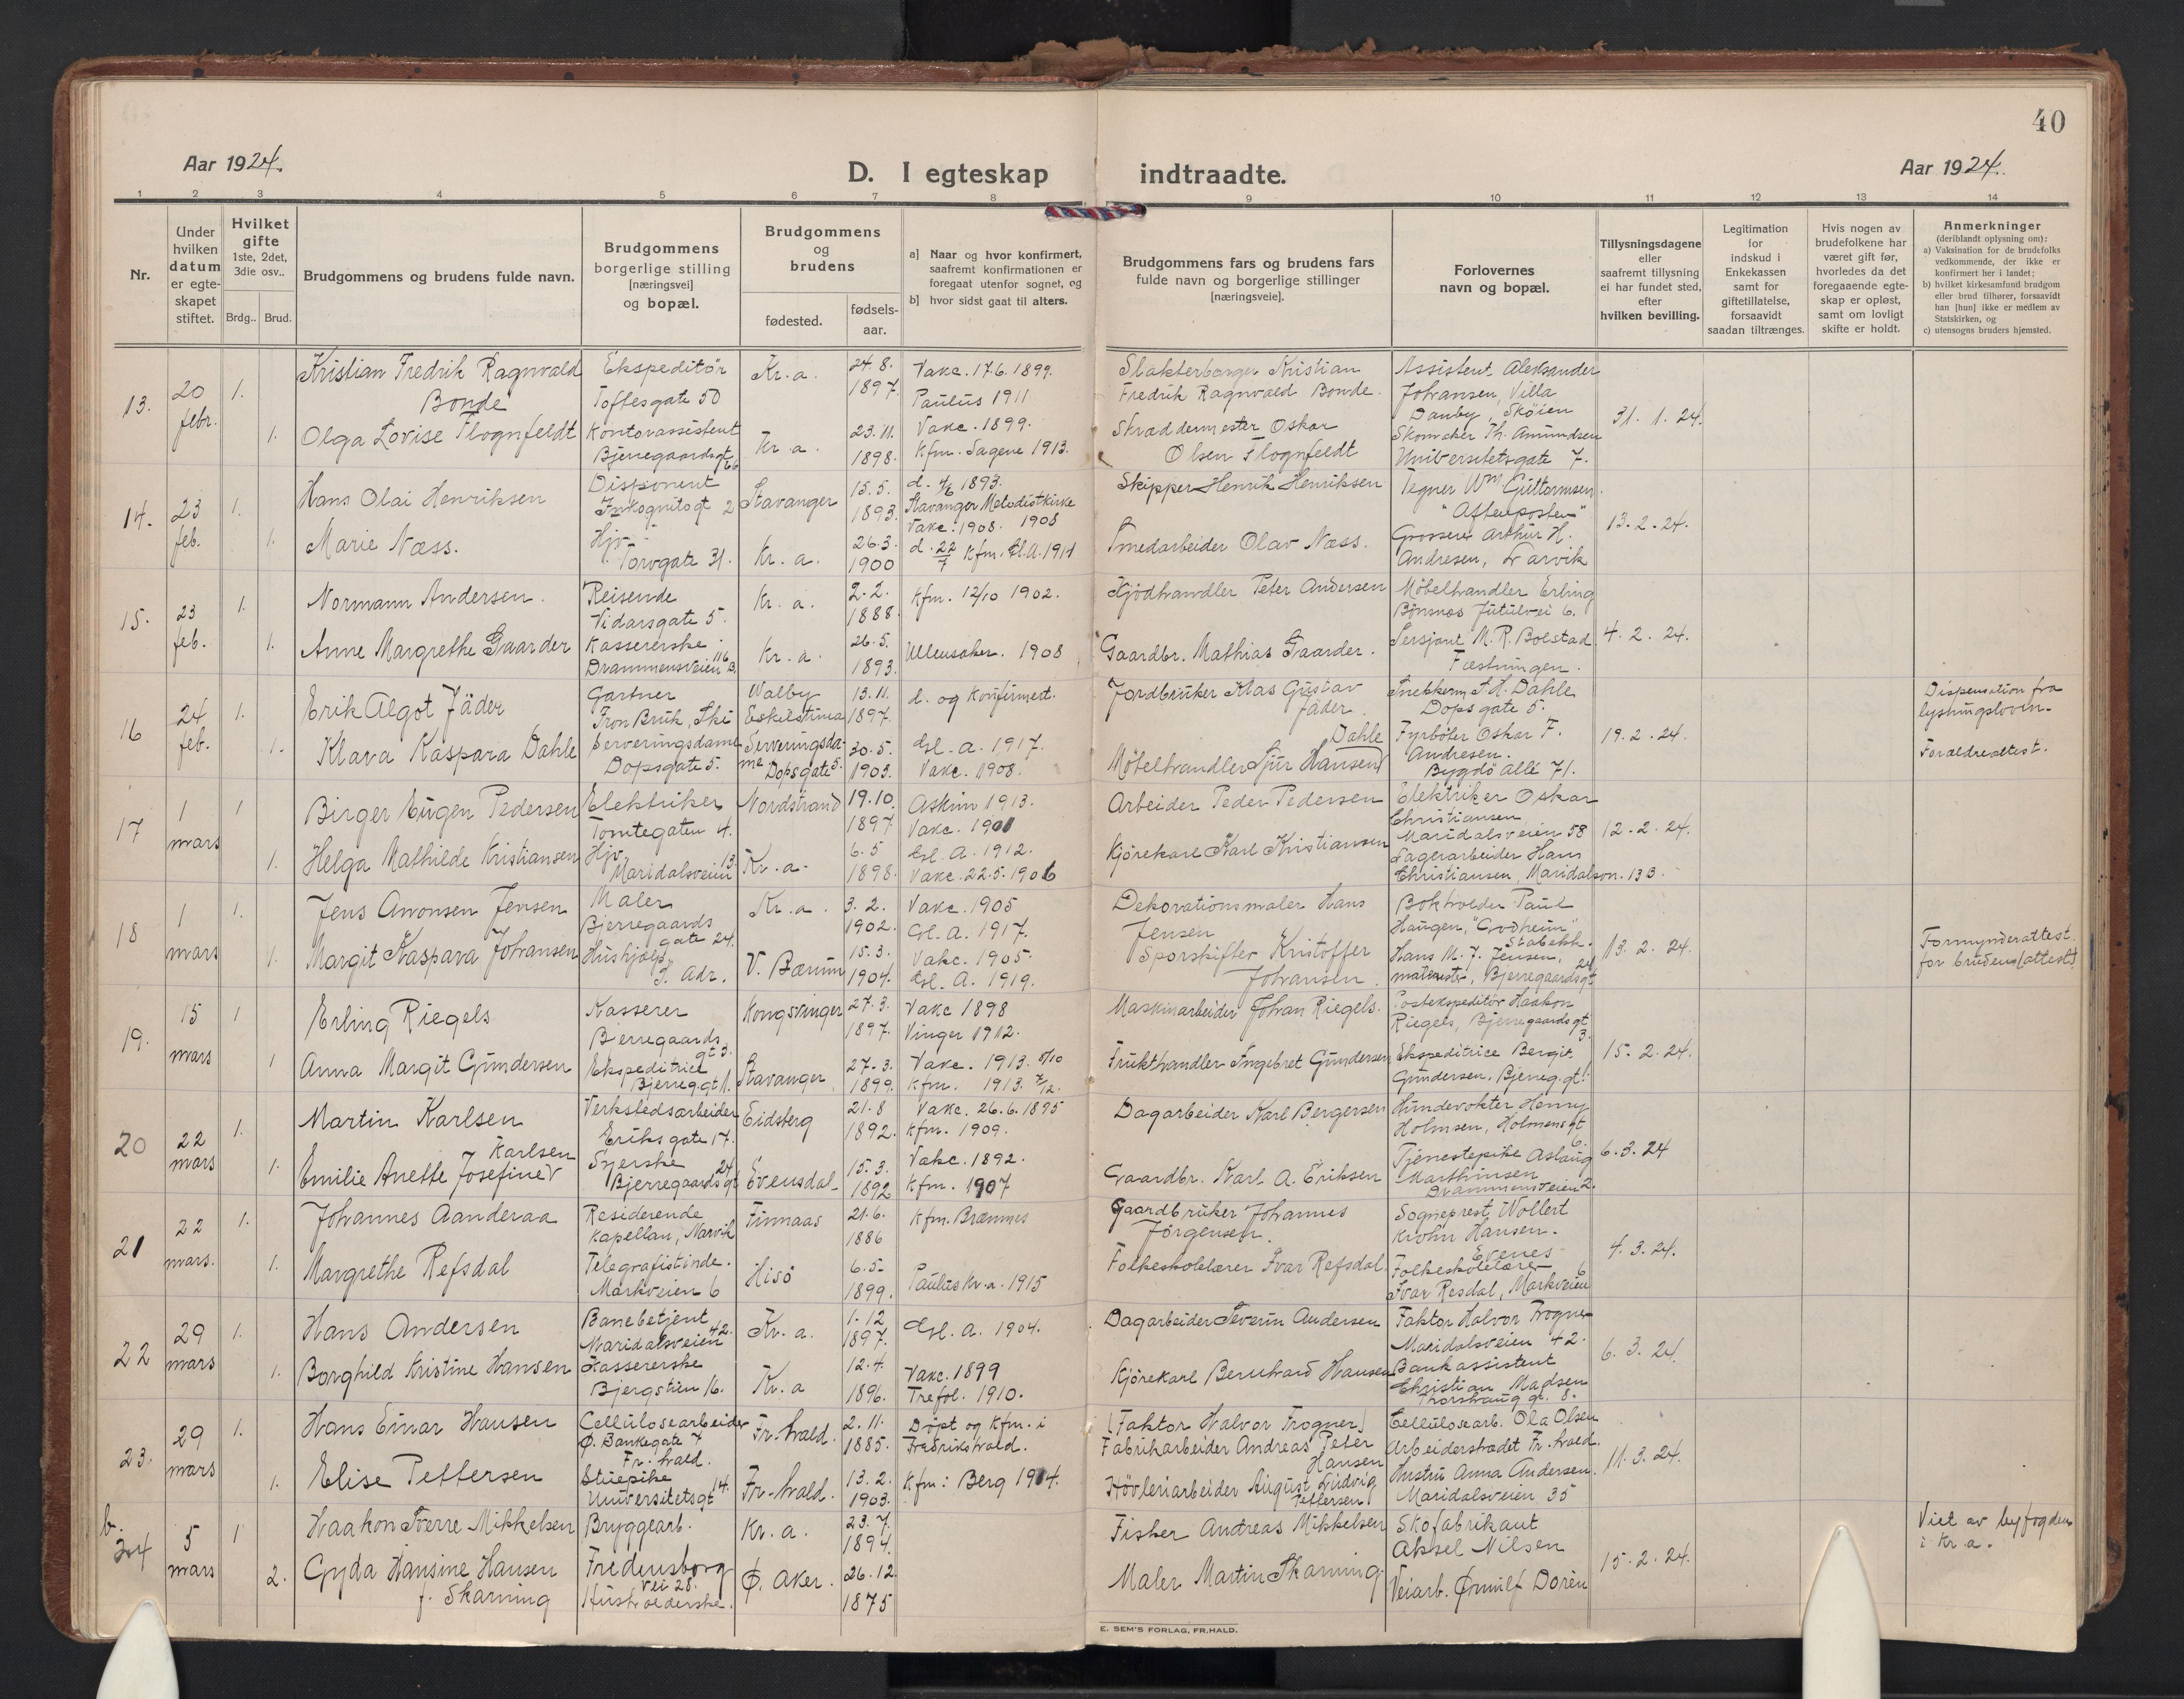 40
Aar 1924.
D. I egteskap indtraadte.
Aar 1924.
1 2 3 4 5 6 7 8 9 10 11 12 13 14
Nr.
Under hvilken datum er egte-skapet stiftet.
Hvilket gifte 1ste, 2det, 3die osv..
Brdg.. Brud.
Brudgommens og brudens fulde navn.
Brudgommens borgerlige stilling [næringsvei] og bopæl.
Brudgommens og brudens
fødested.
fødsels-aar.
a] Naar og hvor konfirmert, saafremt konfirmationen er foregaat utenfor sognet, og
b] hvor sidst gaat til alters.
Brudgommens fars og brudens fars fulde navn og borgerlige stillinger [næringsveie].
Forlovernes navn og bopæl.
Tillysningsdagene eller saafremt tillysning ei har fundet sted, efter hvilken bevilling.
Legitimation for indskud i Enkekassen samt for giftetillatelse, forsaavidt saadan tiltrænges.
Hvis nogen av brudefolkene har været gift før, hvorledes da det foregaaende egte-skap er opløst, samt om lovligt skifte er holdt.
Anmerkninger (deriblandt oplysning om):
a) Vaksination for de brudefolks vedkommende, der ikke er konfirmert her i landet;
b) hvilket kirkesamfund brudgom eller brud tilhører, forsaavidt han [hun] ikke er medlem av Statskirken, og
c) utensogns bruders hjemsted.
13. 20 febr. 1. Kristian Fredrik Ragnvald Bonde
Ekspeditör Toftesgate 50
Kr.a. 24.8. 1897.
Vakc. 17.6.1899. Paulus 1911
Slakterborger Kristian Fredrik Ragnvald Bonde.
Assistent Aleksander Johansen, Villa Danby, Sköien
31. 1. 24.
1. Olga Lovise Flognfeldt
Kontorassistent Bjerregaardsgt 66
Kr.a. 23.11. 1898.
Vakc. 1899. Kfm. Sagene 1913.
Skræddermester Oskar Olsen Flognfeldt
Skomaker Th. Amundsen Universitetsgate 7.
14. 23 feb. 1. Hans Olai Henriksen
Disponent Inkognitogt 2
Stavanger 15.5. 1893.
d. 4/6 1893. Stavanger Metodistkirke Vakc. 1908. 1908
Skipper Henrik Henriksen
Tegner Wm Guttormsen "Aftenposten"
13. 2. 24.
1. Marie Næss.
Hjv. Torvgate 31.
Kr. a. 26.3. 1900
d. 22/7 Kfm. Gl.A. 1914
Smedarbeider Olav Næss.
Grosserer Arthur H. Andresen, Larvik
15. 23 feb. 1. Normann Andersen.
Reisende Vidarsgate 5.
Kr. a. 2.2. 1888.
Kfm. 12/10 1902.
Kjödhandler Peter Andersen
Möbelhandler Erling Bönsnes Jutulvei 6.
4. 2. 24.
1. Anne Margrethe Gaarder
Kassererske Drammensveien 116 B.
Kr. a. 26.5. 1893.
Ullensaker. 1908
Gaardbr. Mathias Gaarder.
Sersjant M.R. Bolstad Fæstningen.
16 24 feb. 1. Erik Algot Jäder
Gartner Tron Bruk, Ski
Walby Eskilstuna 13.11. 1897.
d. og konfirmert.
Jordbruker Klas Gustav Jäder.
Snekkerm. S.H. Dahle Dops gate 5.
19. 2. 24.
Dispensation fra lysningsloven.
1. Klara Kaspara Dahle
Serveringsdame Dopsgate 5.
Serveringsda-me Dopsgate 5. 30.5. 1903.
Gl. a. 1917. Vakc. 1908.
Möbelhandler Sjur Hansen Dahle
Fyrböter Oskar F. Andresen. Bygdö alle 71.
Forældreattest.
17 1 mars 1 Birger Eugen Pedersen
Elektriker Tomtegaten 4.
Nordstrand 19.10. 1897
Askim 1913. Vakc. 1901
Arbeider Peder Pedersen
Elektriker Oskar Christiansen Maridalsveien 58
12. 2. 24.
1. Helga Mathilde Kristiansen
Hjv. Maridalsveien 13.
Kr. a. 6.5 1898.
Gl. A. 1912. Vakc. 22.5.1906
Kjörekarl Karl Kristiansen
Lagerarbeider Hans Christiansen, Maridalsvn. 13 B.
18 1 mars 1. Jens Aronsen Jensen
Maler Bjerregaards gate 24.
Kr. a. 3.2. 1902.
Vakc. 1905 Gl. A. 1917.
Dekorationsmaler Hans Jensen
Bokholder Paul Haugen, "Grodheim" Stabekk.
13. 2. 24.
1. Margit Kaspara Johansen
Hushjælp S. Adr.
V. Bærum 15.3. 1904.
Vakc. 1905. Gl. A. 1919.
Sporskifter Kristoffer Johansen.
Hans M. J. Jensen, malermester, Bjerregaardsgt 24
Formynderattest. for bruden (attest).
19. 15 mars 1 Erling Riegels
Kasserer Bjerregaards gt 3.
Kongsvinger 27.3. 1897.
Vakc 1898 Vinger 1912.
Maskinarbeider Johan Riegels.
Postekspeditör Haakon Riegels, Bjerregaards gt 3.
15. 2. 24.
1 Anna Margit Gundersen
Ekspeditrice Bjerreg.gt 1.
Stavanger 27.3. 1899.
Vakc. 1913. 5/10 Kfm. 1913. 7/12.
Frukthandler Ingebret Gundersen
Ekspeditrice Bergit Gundersen. Bjerreg.gt 1.
20 22 mars 1. Martin Karlsen
Verkstedsarbeider Eriks gate 17.
Eidsberg 21.8 1892.
Vakc. 26.6.1895 Kfm. 1909.
Dagarbeider Karl Bergersen
Hundevokter Henry Holmsen, Holmensgt 6.
6. 3. 24
1. Emilie Anette Josefine Karlsen
Syerske Bjerregaardsgt 24
Evensdal 15.3. 1892
Vakc. 1892. Kfm. 1907
Gaardbr. Karl A. Eriksen
Tjenestepike Aslaug Marthinsen Drammensveien 2.
21 22 mars. 1. Johannes Aanderaa
Residerende Kapellan, Narvik
Finnaas 21.6. 1886
Kfm. Bræmnes
Gaardbruker Johannes Jörgensen.
Sogneprest Wollert Krohn Hansen. Evenes
4. 3. 24.
1. Margrethe Refsdal
Telegrafistinde. Markveien 6
Hisö 6.5. 1899.
Paulus Kr.a. 1915
Folkeskolelærer Ivar Refsdal.
Folkeskolelærer Ivar Resdal, Markveien 6
22 29 mars 1. Hans Andersen
Banebetjent Maridalsveien 42.
Kr. a. 1.12 1897.
Gl. A. 1904.
Dagarbeider Severin Andersen
Faktor Halvor Trogner Maridalsveien 42.
6. 3. 24.
1. Borghild Kristine Hansen
Kassererske Bjergstien 16.
Kr. a 12.4. 1896.
Vakc. 1899 Trefol. 1910.
Kjörekarl Bernhard Hansen
Bankassistent Christian Madsen Thorshaug gt. 8.
23. 29 mars 1. Hans Einar Hansen
Cellulosearbeider Ø. Bankegate 7 Fr. hald.
Fr. hald. 2.11. 1885.
Döpt og Kfm. i Fredrikshald.
(Faktor Halvor Frogner) Fabrikarbeider Andreas Peter Hansen
Cellulosearb. Ola Olsen Arbeiderstradet Fr. hald.
11. 3. 24.
1. Elise Pettersen
Stuepike Universitetsgt 14.
Fr. hald. 13.2. 1903.
Kfm: Berg 1914.
Hövleriarbeider August Ludvig Pettersen
Hustru Anna Andersen. Maridalsveien 35
b. 24 5 mars 1 Haakon Sverre Mikkelsen
Bryggearb. Fredensborg vei 28.
Kr. a. 23.7. 1894.
Fisker Andreas Mikkelsen
Skofabrikant Aksel Nilsen
15. 2. 24.
Viet av byfogden i Kr.a.
2. Gyda Hansine Hansen f. Skarning
Husholderske.
Ø. Aker. 26.12. 1875
Maler Martin Skarning
Veiarb. Ørnulf Dorèn
E. SEM'S FORLAG, FR.HALD.